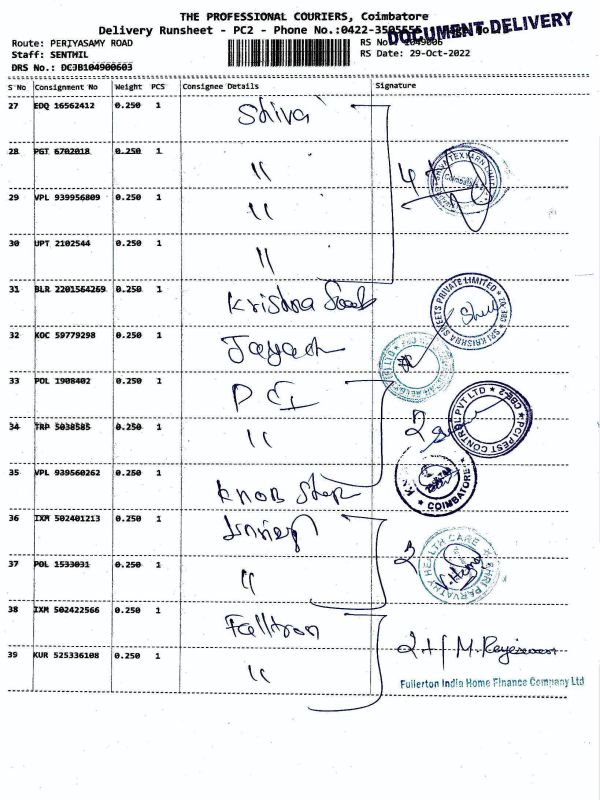 THE PROFESSIONAL COURIERS, Coimbatore
Delivery Runsheet - PC2 - Phone No.:0422-3505555
DOCUMENT DELIVERY
Route: PERIYASAMY ROAD
RS No
Staff: SENTHIL
RS Date: 29-Oct-2022
DRS No.: DCJB104900603
S No Consignment No Weight PCS Consignee Details Signature
27 EDQ 16562412 0.250 1 Shiva
28 PGT 6702018 0.250 1 "
29 VPL 939956809 0.250 1 "
30 UPT 2102544 0.250 1 "
31 BLR 2201564269 0.250 1 Krishna
SRI KRISHNA SWEETS PRIVATE LIMITED
32 KOC 59779298 0.250 1
33 POL 1908402 0.250 1 PCI
PCI PEST CONTROL PVT LTD
34 TRP 5038585 0.250 1 " 2
35 VPL 939560262 0.250 1
COIMBATORE
36 IXM 502401213 0.250 1
37 POL 1533031 0.250 1 " 2
SHRI PARVATHY HEALTH CARE
38 IXM 502422566 0.250 1
39 KUR 525336108 0.250 1 "
Fullerton India Home Finance Company Ltd